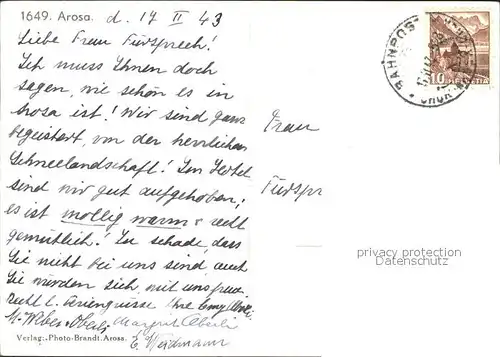 1649. Arosa. d. 14 II 43
Liebe Frau Fürsprech!
Ich muss Ihnen doch
sagen, wie schön es in
Arosa ist! Wir sind ganz
begeistert von der herrlichen
Schneelandschaft! Im Hotel
sind wir gut aufgehoben;
es ist mollig warm & recht
gemütlich! Zu schade, dass
Sie nicht bei uns sind auch
Sie würden sich mit uns freuen.
Recht l. Feriengrüsse Ihre Emy
M. Weber-Oberli Margrit Oberli
E. Weidmann
Verlag: Photo-Brandt. Arosa.
Frau
Fürspr
BAHNPOST
10 HELVETIA
CHUR
privacy protection
Datenschutz